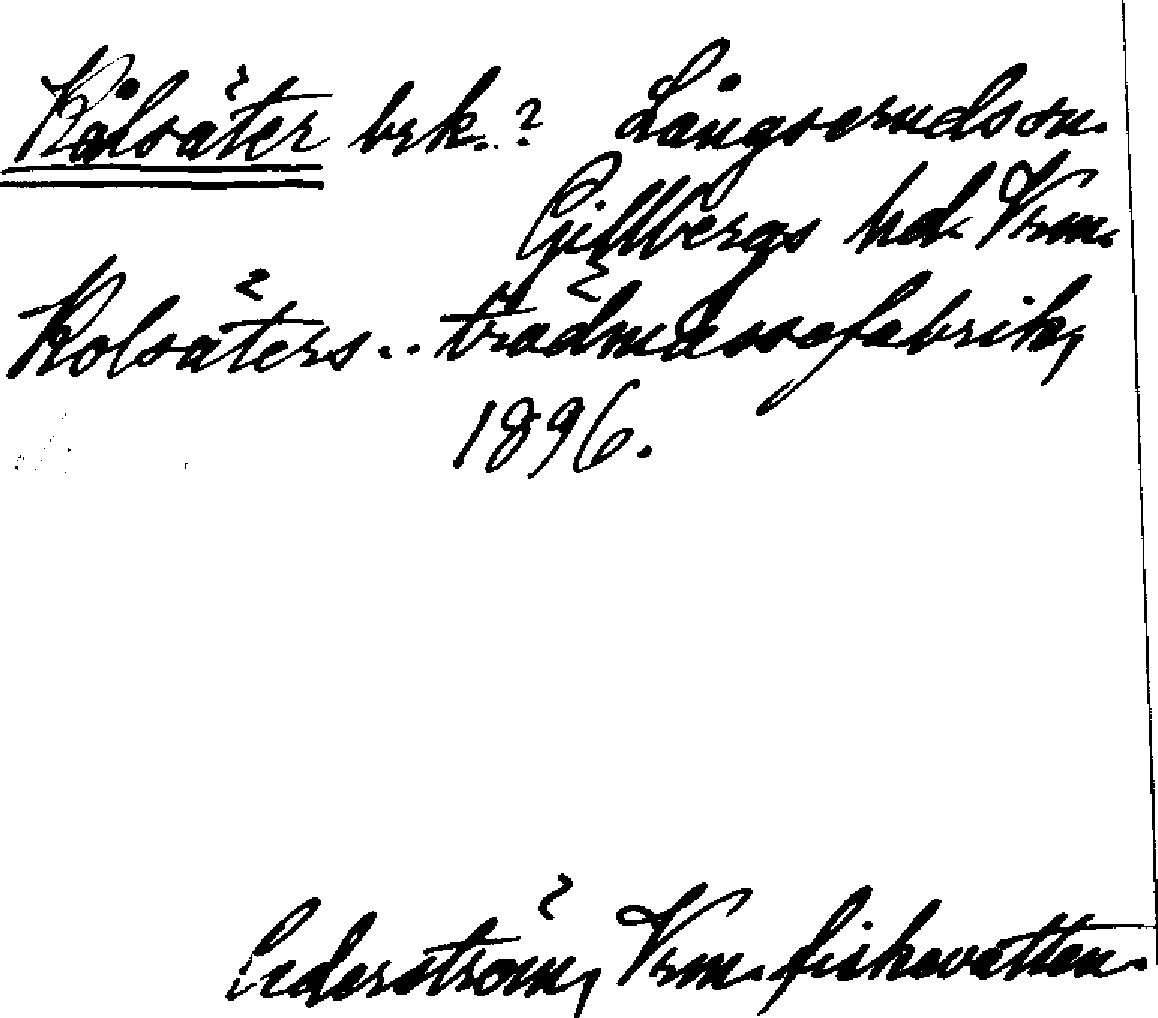 Kålsäter brk.? Långserudssn.
Gillbergs hd. Vrm.
Kolsäters .. trädmassefabrik,
1896.
Cederström, Vrm. fiskevatten.